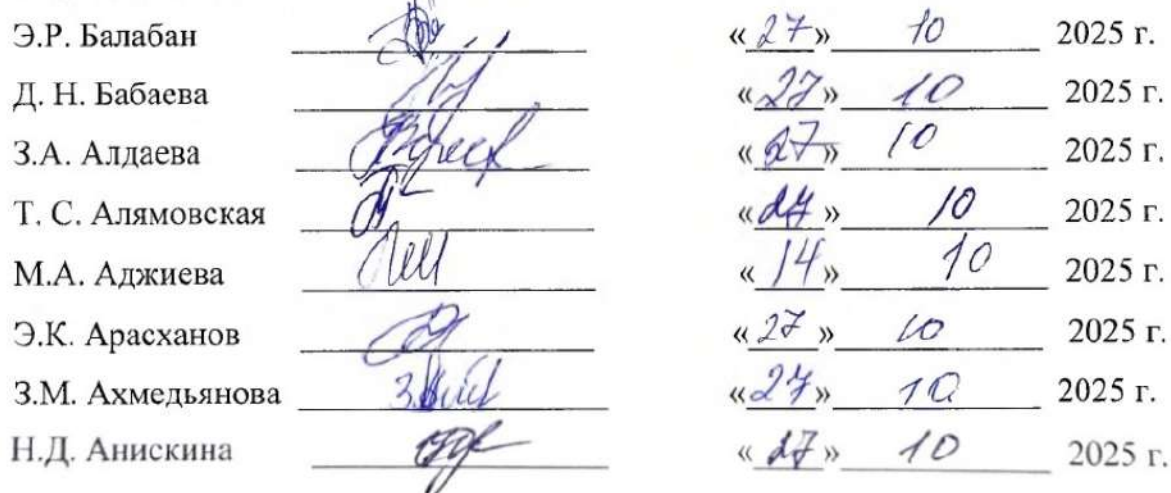 Э.Р. Балабан «27» 10 2025 г.
Д. Н. Бабаева «27» 10 2025 г.
З.А. Алдаева «27» 10 2025 г.
Т. С. Алямовская «27» 10 2025 г.
М.А. Аджиева «14» 10 2025 г.
Э.К. Арасханов «27» 10 2025 г.
З.М. Ахмедьянова «27» 10 2025 г.
Н.Д. Анискина «27» 10 2025 г.